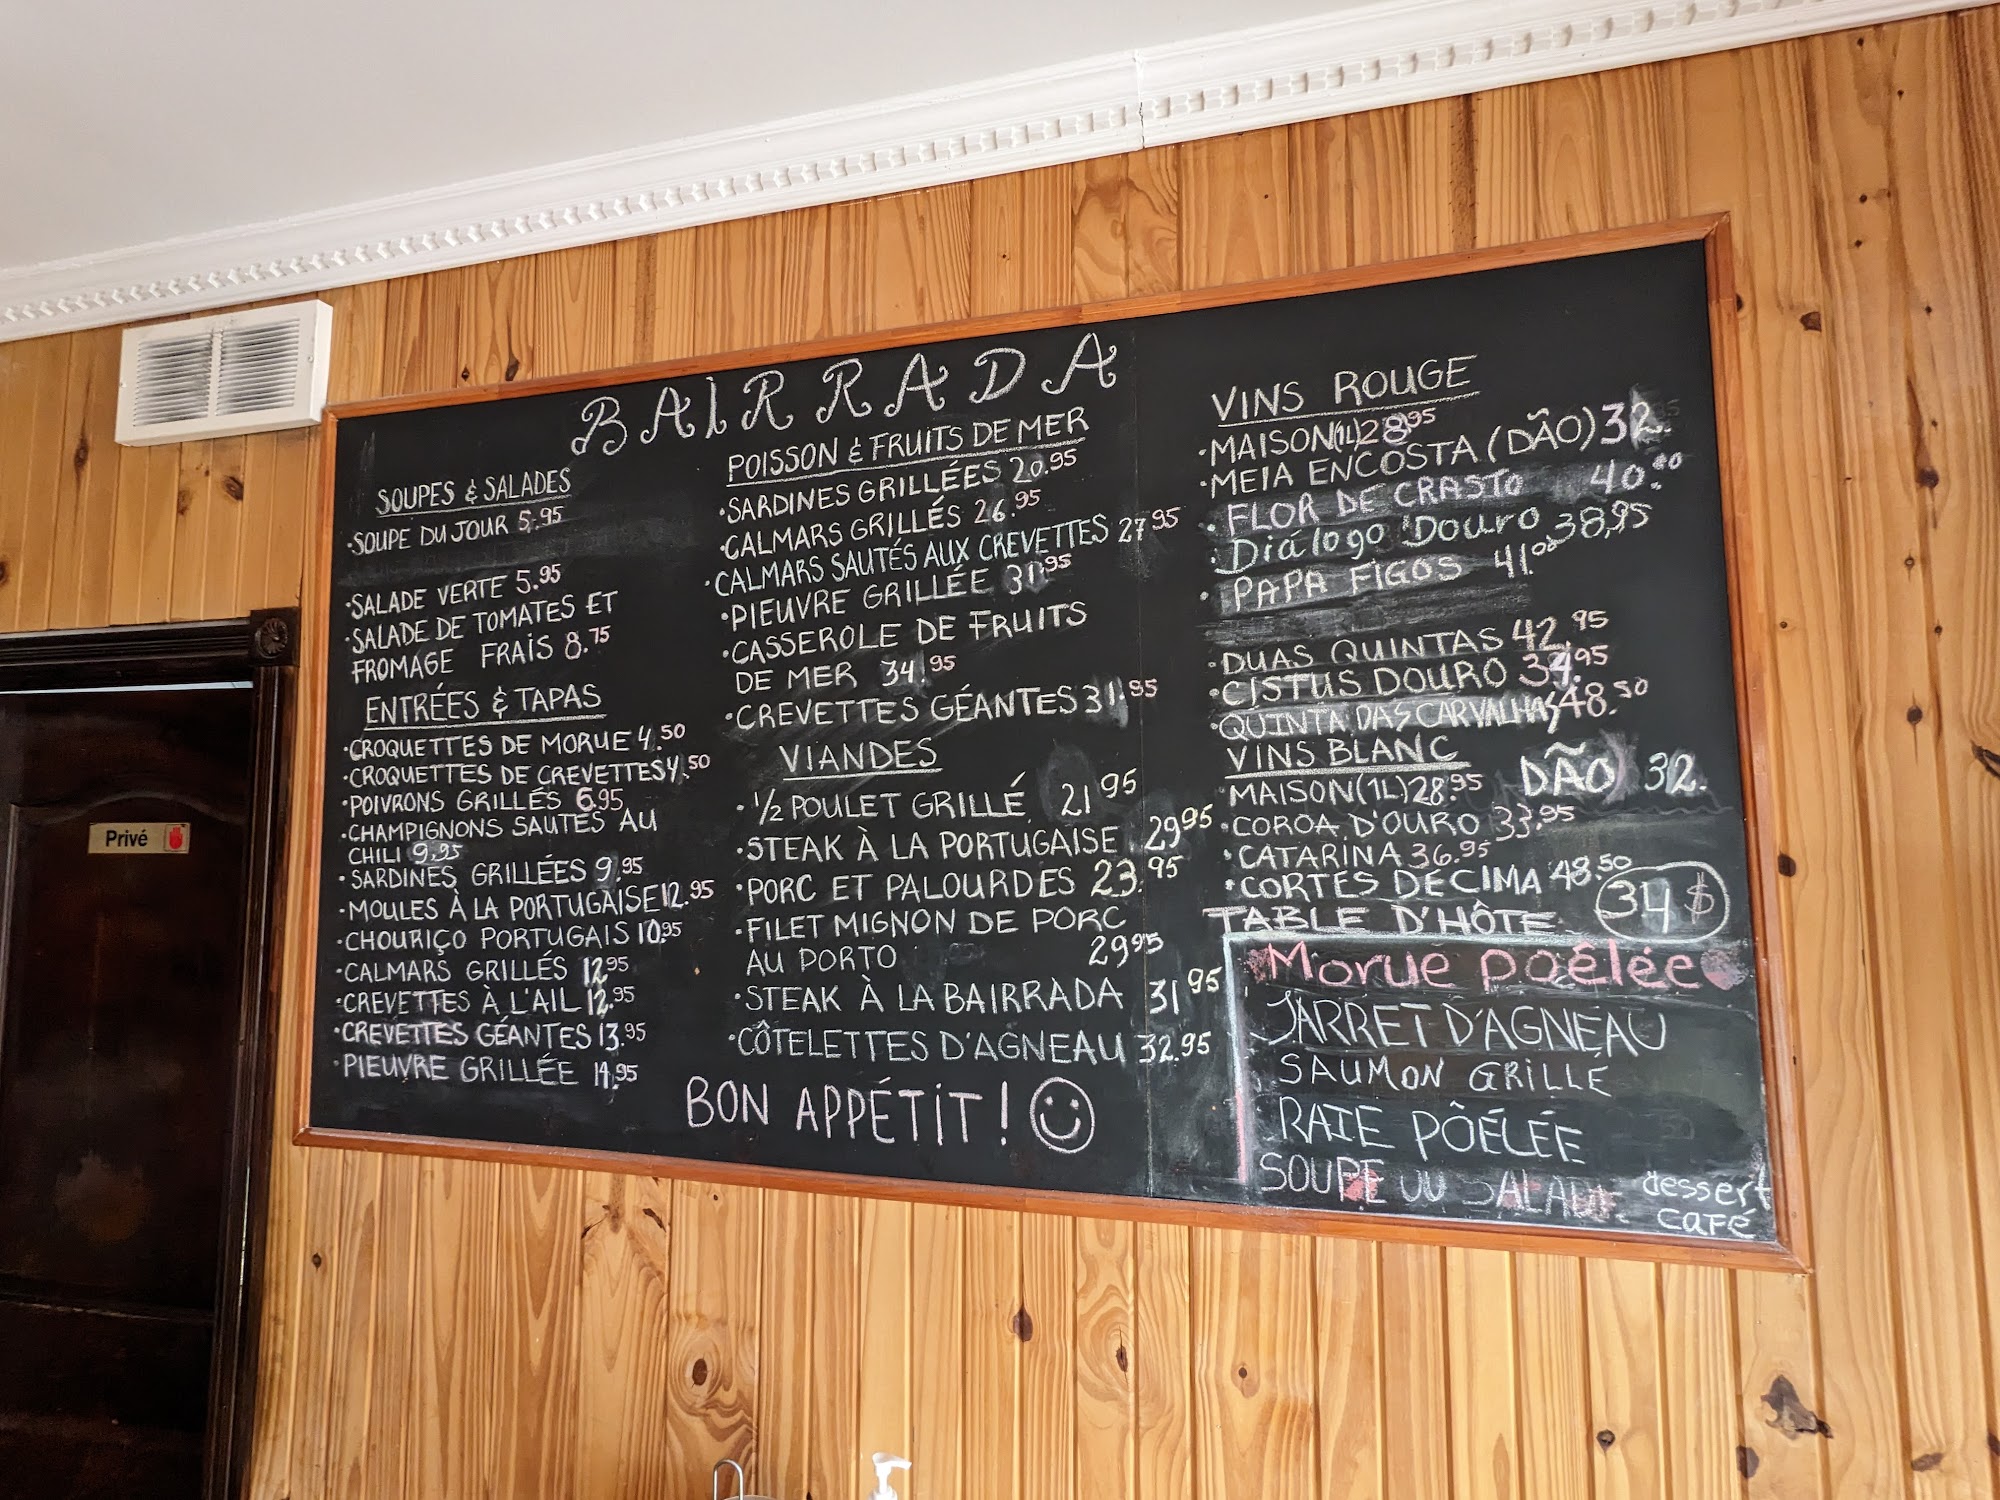 Privé
BAIRRADA
SOUPES & SALADES
·SOUPE DU JOUR 5.95
·SALADE VERTE 5.95
·SALADE DE TOMATES ET
FROMAGE FRAIS 8.75
ENTRÉES & TAPAS
·CROQUETTES DE MORUE 4.50
·CROQUETTES DE CREVETTES 4.50
·POIVRONS GRILLÉS 6.95
·CHAMPIGNONS SAUTES AU
CHILI 9.95
·SARDINES GRILLÉES 9.95
·MOULES À LA PORTUGAISE 12.95
·CHOURIÇO PORTUGAIS 10.95
·CALMARS GRILLÉS 12.95
·CREVETTES À L'AIL 12.95
·CREVETTES GÉANTES 13.95
·PIEUVRE GRILLÉE 14.95
POISSON & FRUITS DE MER
·SARDINES GRILLÉES 20.95
·CALMARS GRILLÉS 26.95
·CALMARS SAUTÉS AUX CREVETTES 27.95
·PIEUVRE GRILLÉE 31.95
·CASSEROLE DE FRUITS
DE MER 34.95
·CREVETTES GÉANTES 31.95
VIANDES
·1/2 POULET GRILLÉ 21.95
·STEAK À LA PORTUGAISE 29.95
·PORC ET PALOURDES 23.95
·FILET MIGNON DE PORC
AU PORTO 29.95
·STEAK À LA BAIRRADA 31.95
·CÔTELETTES D'AGNEAU 32.95
BON APPÉTIT!
VINS ROUGE
·MAISON(1L) 28.95
·MEIA ENCOSTA (DÃO) 32.
·FLOR DE CRASTO 40.00
·Diálogo Douro 38,95
·PAPA FIGOS 41.00
·DUAS QUINTAS 42.95
·CISTUS DOURO 34.95
·QUINTA DAS CARVALHAS 48.50
VINS BLANC
·MAISON(1L) 28.95 DÃO 32.
·COROA D'OURO 33.95
·CATARINA 36.95
·CORTES DECIMA 48.50
TABLE D'HÔTE 34$
Morue poêlée
JARRET D'AGNEAU
SAUMON GRILLÉ
RAIE PÔÉLÉE
SOUPE OU SALADE
dessert
café